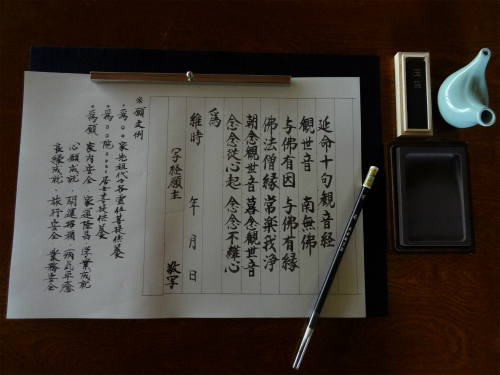 延命十句観音経
観世音　南無佛
与佛有因　与佛有縁
佛法僧縁　常楽我浄
朝念観世音　暮念観世音
念念従心起　念念不離心
為
維時　年　月　日
写経願主　敬写
※願文例
・為○○家先祖代々各霊位菩提供養
・為○○院○○○居士菩提供養
・為願　家内安全　家運隆昌　学業成就
心願成就　開運招福　病気平癒
良縁成就　旅行安全　業務安全